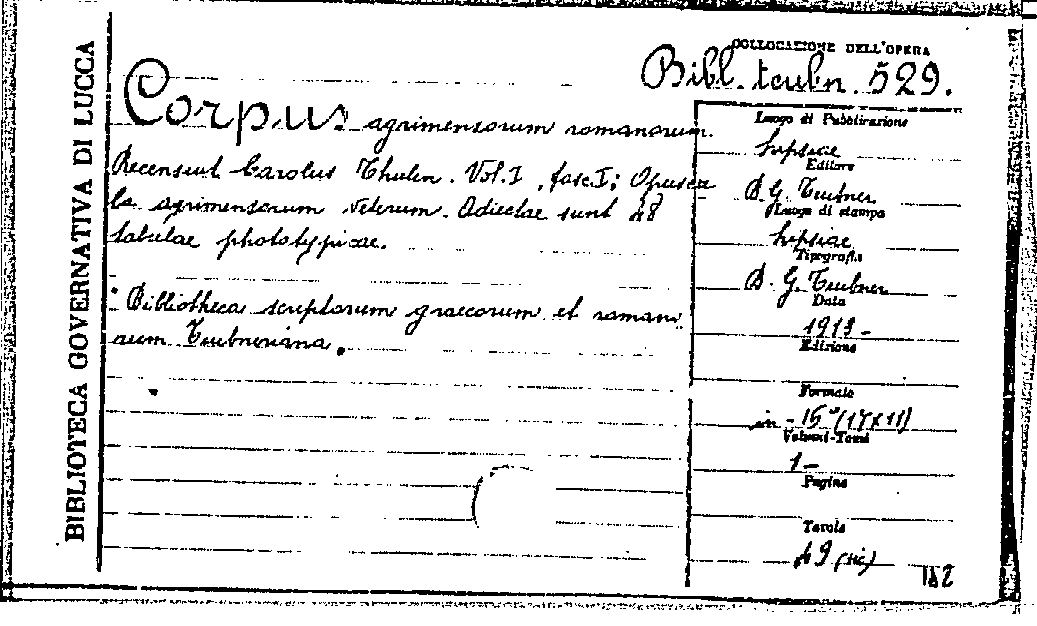 BIBLIOTECA GOVERNATIVA DI LUCCA
COLLOCAZIONE DELL'OPERA
Bibl. teubn. 529.
Corpus agrimensorum romanorum.
Recensuit Carolus Thulin. Vol. I, fasc. I; Opuscu
la agrimensorum veterum. Adiectae sunt 48
tabulae phototypicae.
Bibliotheca scriptorum graecorum et romano
rum Teubneriana.
Luogo di Pubblicazione
Lipsiae
Editore
B. G. Teubner
Luogo di stampa
Lipsiae
Tipografia
B. G. Teubner
Data
1913-
Edizione
Formato
in-16° (17x11)
Volumi-Tomi
1-
Pagine
Tavole
49 (sic)
182